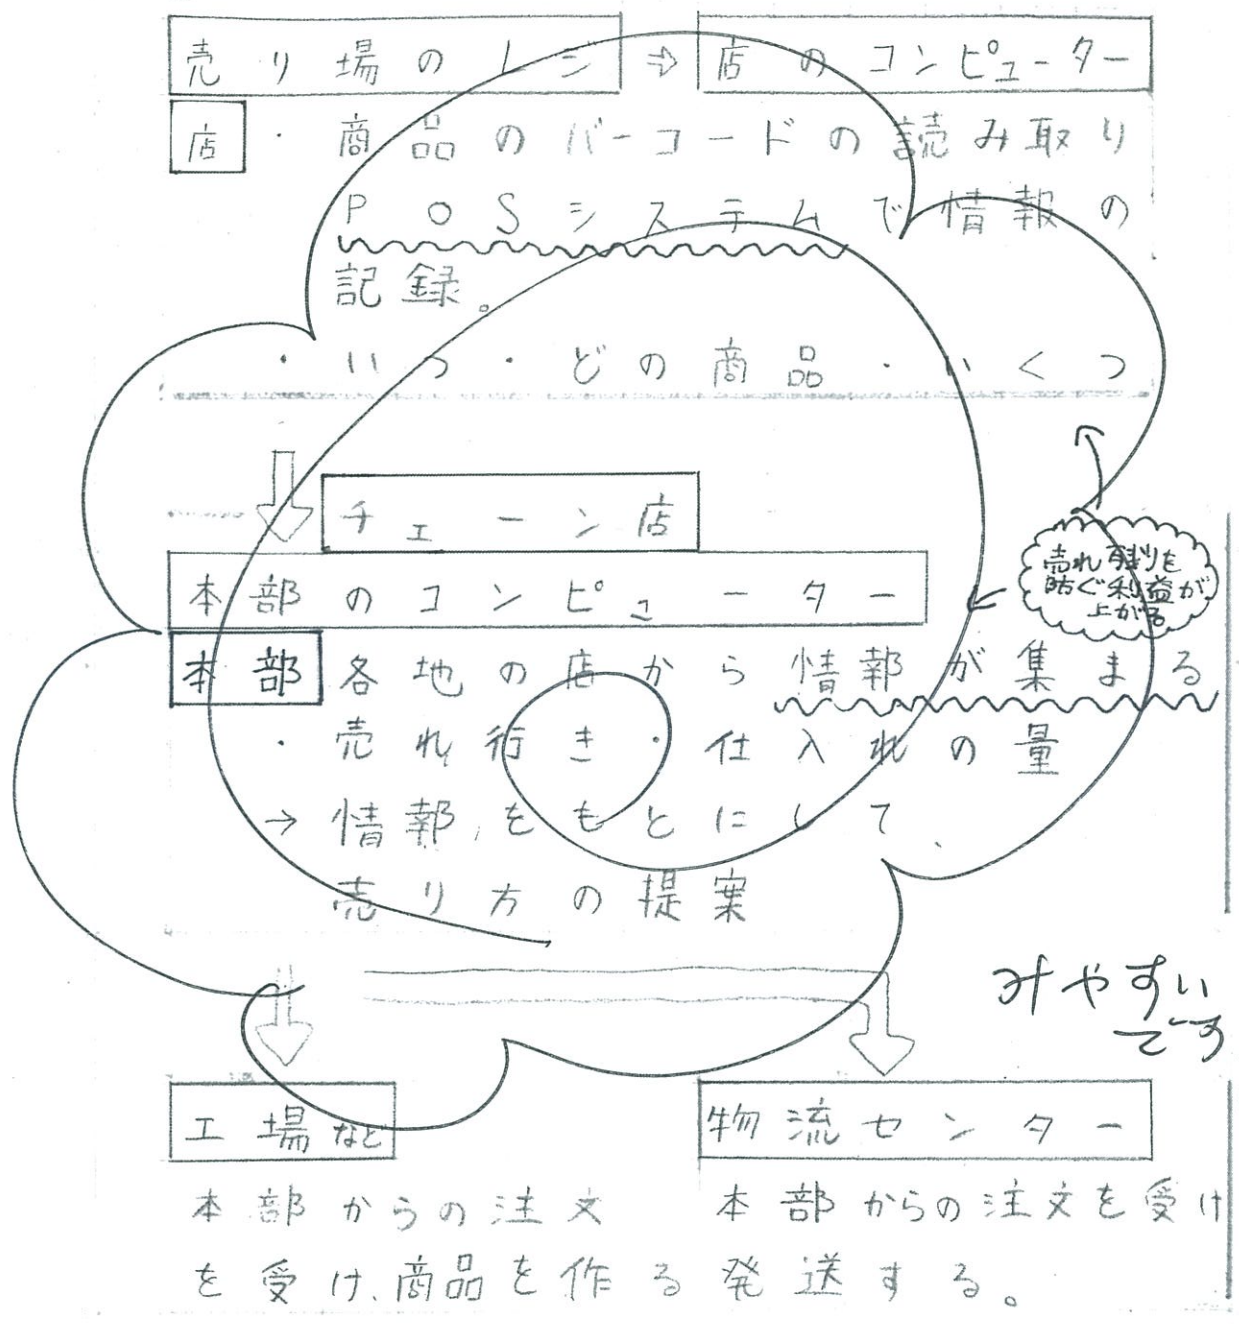 売り場のレジ ⇒ 店のコンピューター
店 ・商品のバーコードの読み取り
POSシステムで情報の
記録。
・いつ・どの商品・いくつ
チェーン店
本部のコンピューター
売れ残りを
防ぐ利益が
上がる
本部 各地の店から情報が集まる
・売れ行き・仕入れの量
→情報をもとにして、
売り方の提案
みやすい
です
工場など
物流センター
本部からの注文
を受け、商品を作る
本部からの注文を受け
発送する。